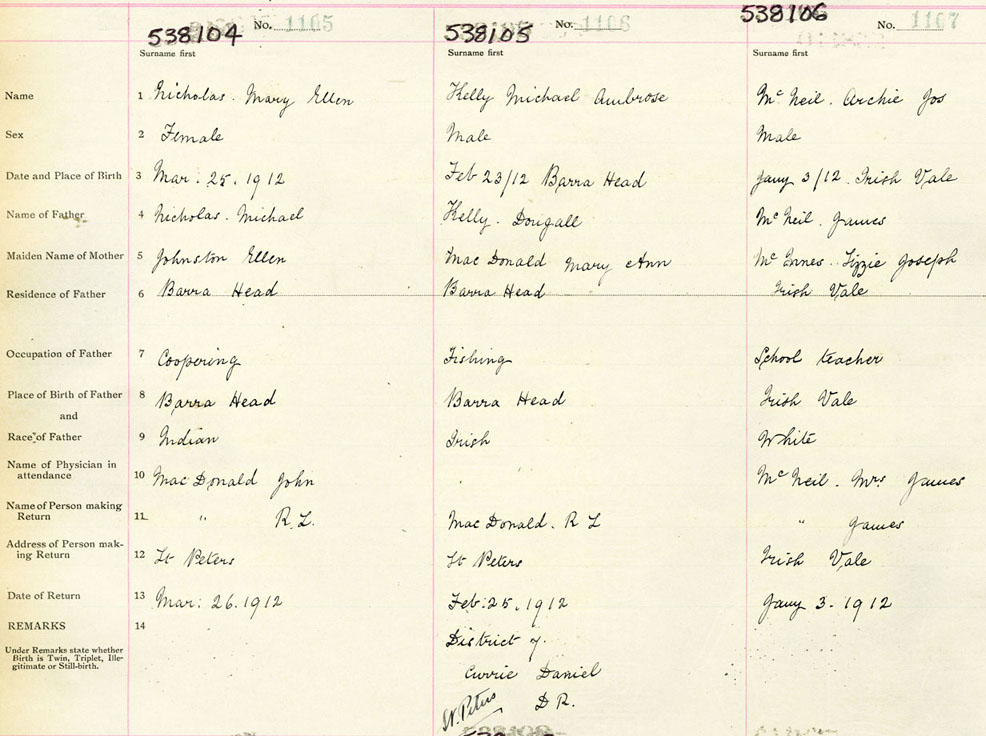 538104 No. 1105 538105 No. 1106 538106 No. 1107
Surname first Surname first Surname first
Name 1 Nicholas. Mary Ellen Kelly Michael Ambrose Mc Neil. Archie Jos
Sex 2 Female Male Male
Date and Place of Birth 3 Mar. 25. 1912 Feb 23/12 Barra Head Jany 3/12. Irish Vale
Name of Father 4 Nicholas. Michael Kelly. Dougall Mc Neil. James
Maiden Name of Mother 5 Johnston Ellen Mac Donald Mary Ann Mc Innes. Lizzie Joseph
Residence of Father 6 Barra Head Barra Head Irish Vale
Occupation of Father 7 Coopering Fishing School teacher
Place of Birth of Father 8 Barra Head Barra Head Irish Vale
and
Race of Father 9 Indian Irish White
Name of Physician in
attendance 10 Mac Donald John Mc Neil. Mrs James
Name of Person making
Return 11 " R. L. Mac Donald. R L " James
Address of Person mak-
ing Return 12 St Peters St Peters Irish Vale
Date of Return 13 Mar: 26. 1912 Feb: 25. 1912 Jany 3. 1912
REMARKS 14
District of
Under Remarks state whether
Birth is Twin, Triplet, Ille-
gitimate or Still-birth.
Currie Daniel
St. Peters D R.